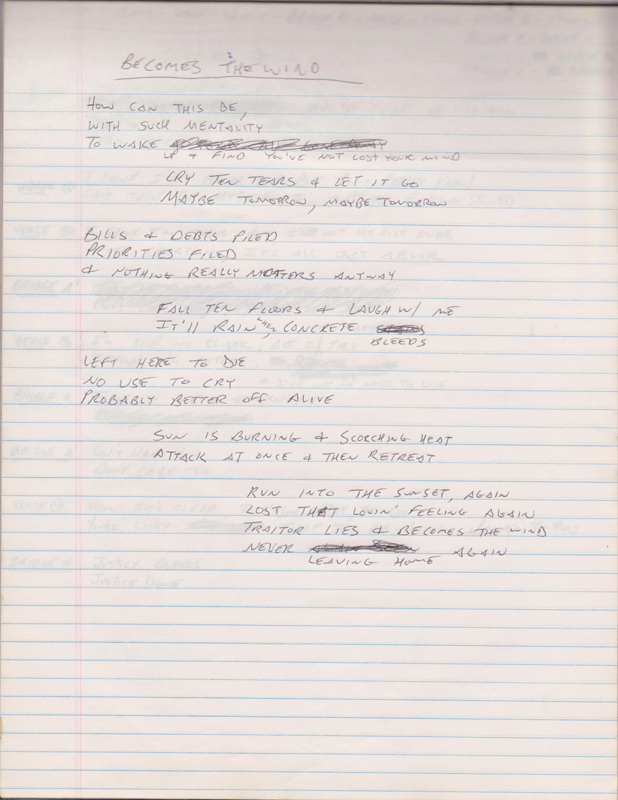 BECOMES THE WIND
HOW CAN THIS BE,
WITH SUCH MENTALITY
TO WAKE
UP & FIND YOU'VE NOT LOST YOUR MIND
CRY TEN TEARS & LET IT GO
MAYBE TOMORROW, MAYBE TOMORROW
BILLS & DEBTS PILED
PRIORITIES FILED
& NOTHING REALLY MATTERS ANYWAY
FALL TEN FLOORS & LAUGH W/ ME
IT'LL RAIN WHEN CONCRETE
BLEEDS
LEFT HERE TO DIE
NO USE TO CRY
PROBABLY BETTER OFF ALIVE
SUN IS BURNING & SCORCHING HEAT
ATTACK AT ONCE & THEN RETREAT
RUN INTO THE SUNSET, AGAIN
LOST THAT LOVIN' FEELING AGAIN
TRAITOR LIES & BECOMES THE WIND
NEVER AGAIN
LEAVING HOME